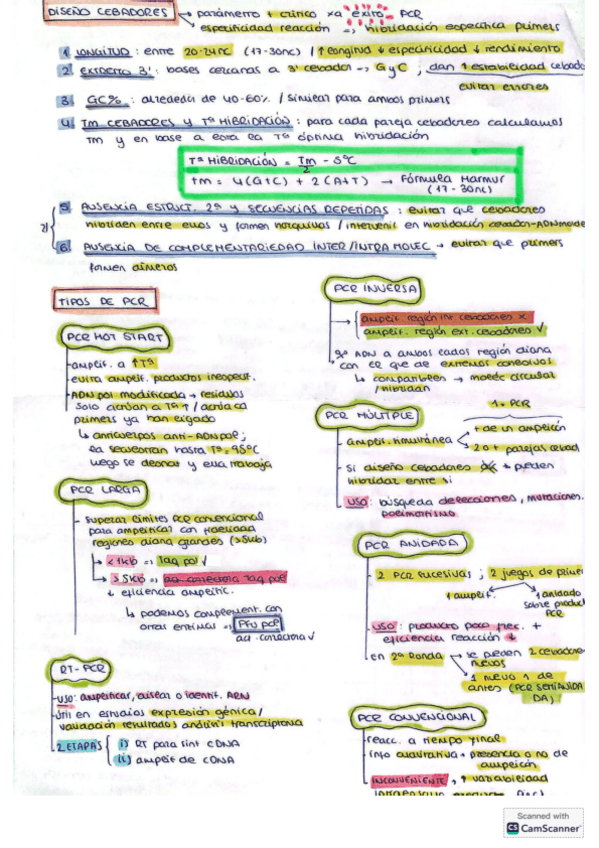 DISEÑO CEBADORES → parámetro + crítico xa éxito PCR
especificidad reacción => hibridación específica primers
1 LONGITUD: entre 20-24nc (17-30nc) / ↑ longitud ↓ especificidad ↓ rendimiento
2 EXTREMO 3': bases cercanas a 3' cebador -> G y C ; dan ↑ estabilidad cebado
evitar errores
3 GC%: alrededor de 40-60% / similar para ambos primers
4 TM CEBADORES Y Tª HIBRIDACIÓN: para cada pareja cebadores calculamos
Tm y en base a esta la Tª óptima hibridación
Tª HIBRIDACIÓN = Tm - 5ºC
2
Tm = 4(G+C) + 2(A+T) → Fórmula Marmur
(17-30nc)
5 AUSENCIA ESTRUCT. 2ª Y SECUENCIAS REPETIDAS: evitar que cebadores
hibriden entre ellos y formen horquillas / intervenir en hibridación cebador-ADNmolde
6 AUSENCIA DE COMPLEMENTARIEDAD INTER/INTRA MOLEC → evitar que primers
formen dímeros
TIPOS DE PCR
PCR HOT START
amplif. a ↑Tª
evita amplif. productos inespecif.
ADN pol modificada → residuos
solo actúan a Tª ↑ / actúa cd
primers ya han ligado
↳ anticuerpos anti-ADNpol;
la secuestran hasta Tª=95ºC
luego se desnat y ella trabaja
PCR LARGA
superar límites PCR convencional
para amplificar con fidelidad
regiones diana grandes (>5kb)
<1kb => Taq pol ✓
>5kb => act correctora Taq pol
↓ eficiencia amplific.
↳ podemos complement. con
otras enzimas => Pfu pol
act. correctora ✓
RT-PCR
USO: amplificar, aislar o identif. ARN
útil en estudios expresión génica /
validación resultados análisis transcriptoma
2 ETAPAS
i) RT para sint cDNA
ii) amplif de cDNA
PCR INVERSA
amplif. región int. cebadores ×
amplif. región ext. cebadores ✓
ADN a ambos lados región diana
con el que de extremos cohesivos
↳ comparten → moléc circular
/ hibridan
PCR MÚLTIPLE
1. PCR
amplif. simultánea
+ de un amplicón
2 o + parejas cebad
Si diseño cebadores + pueden
hibridar entre sí
USO: búsqueda delecciones, mutaciones,
polimorfismo
PCR ANIDADA
2 PCR sucesivas ; 2 juegos de primer
1 amplif. 1 anidado
sobre produc
PCR
USO: producto poco frec. +
eficiencia reacción ↓
en 2ª Ronda → se pueden 2 cebadore
nuevos
1 nuevo 1 de
antes (PCR SEMIANIDA
DA)
PCR CONVENCIONAL
reacc. a tiempo final
info cualitativa → presencia o no de
amplicón
INCONVENIENTE, ↑ variabilidad
Scanned with
CS CamScanner